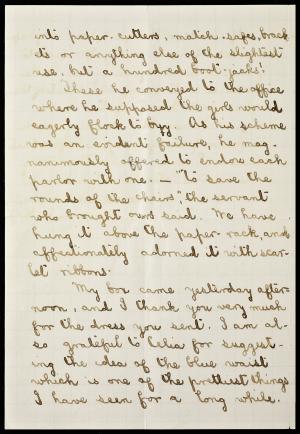 into paper-cutters, match-safes, brack
ets or anything else of the slightest
use, but a hundred boot-jacks!
These he conveyed to the office
where he supposed the girls would
eagerly flock to buy. As his scheme
was an evident failure, he mag-
nanimously offered to endow each
parlor with one. — "to save the
rounds of the chairs", the servant
who brought ours said. We have
hung it above the paper-rack, and
affectionately adorned it with scar-
let ribbons.
My box came yesterday after-
noon, and I thank you very much
for the dress you sent. I am al-
so grateful to Celia for suggest-
ing the idea of the blue waist
which is one of the prettiest things
I have seen for a long while.